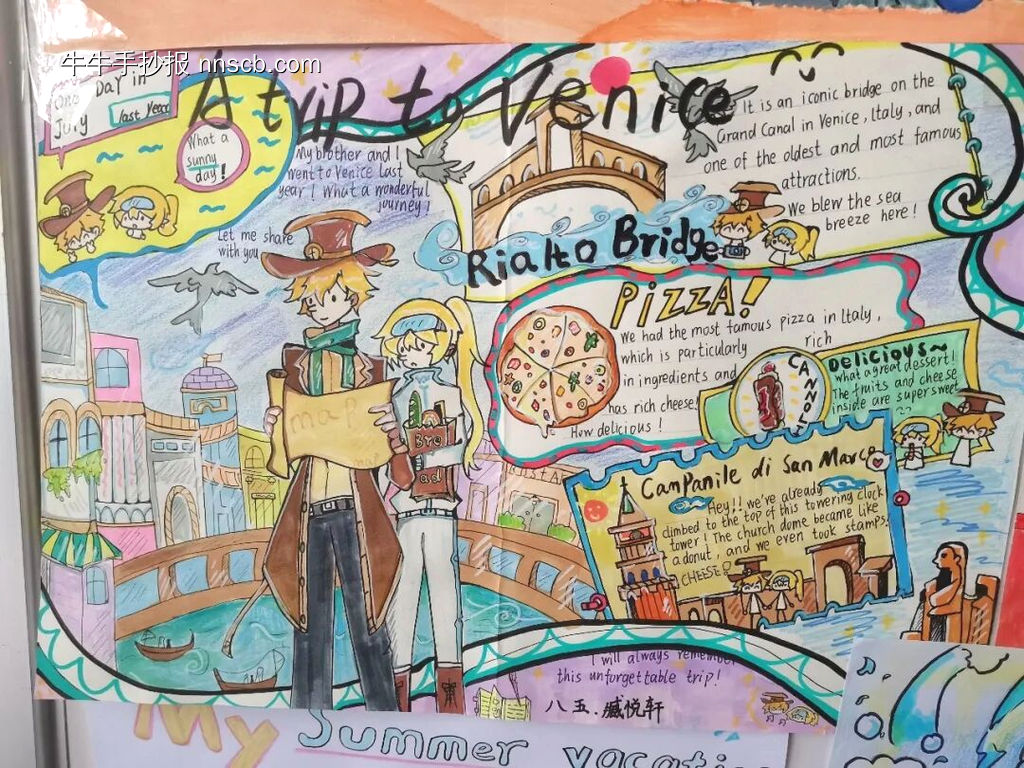 牛牛手抄报 nnscb.com
A trip to Venice
One Day in
July last year
What a
sunny
day!
My brother and I
went to Venice last
year! What a wonderful
journey!
Let me share
with you
It is an iconic bridge on the
Grand Canal in Venice, Italy, and
one of the oldest and most famous
attractions.
We blew the sea
breeze here!
Rialto Bridge
PIZZA!
We had the most famous pizza in Italy,
which is particularly rich
in ingredients and
has rich cheese!
How delicious!
CANNOLI
Delicious~
What a great dessert!
The fruits and cheese
inside are super sweet
map
Bre
ad
Campanile di San Marco
Hey!! we've already
climbed to the top of this towering clock
tower! The church dome became like
a donut, and we even took stamps.
CHEESE?
I will always remember
this unforgettable trip!
八五.臧悦轩
My Summer vacati